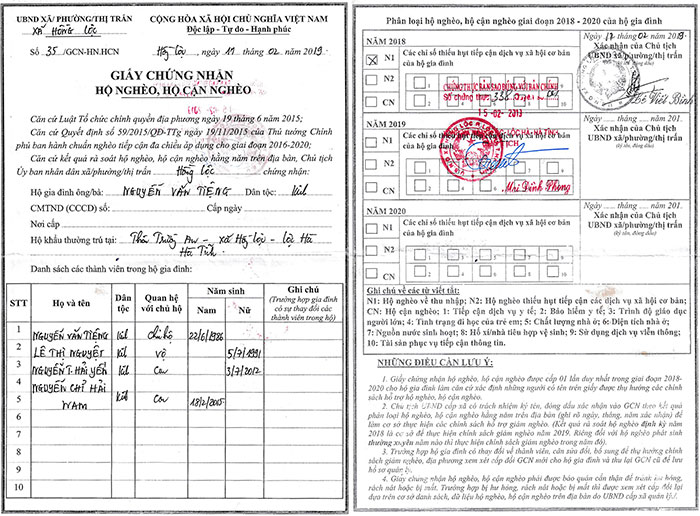 UBND XÃ/PHƯỜNG/THỊ TRẤN
XÃ HỒNG LỘC
CỘNG HÒA XÃ HỘI CHỦ NGHĨA VIỆT NAM
Độc lập - Tự do - Hạnh phúc
Số 35 /GCN-HN.HCN
Hồng Lộc, ngày 11 tháng 02 năm 2019.
GIẤY CHỨNG NHẬN
HỘ NGHÈO, HỘ CẬN NGHÈO
Căn cứ Luật Tổ chức chính quyền địa phương ngày 19 tháng 6 năm 2015;
Căn cứ Quyết định số 59/2015/QĐ-TTg ngày 19/11/2015 của Thủ tướng Chính
phủ ban hành chuẩn nghèo tiếp cận đa chiều áp dụng cho giai đoạn 2016-2020;
Căn cứ kết quả rà soát hộ nghèo, hộ cận nghèo hằng năm trên địa bàn, Chủ tịch
Ủy ban nhân dân xã/phường/thị trấn Hồng Lộc chứng nhận:
Hộ gia đình ông/bà: NGUYỄN VĂN TIẾNG Dân tộc: Kinh
CMTND (CCCD) số: Cấp ngày
Nơi cấp
Hộ khẩu thường trú tại: Thôn Trường An - xã Hồng Lộc - Lộc Hà
Hà Tĩnh
Danh sách các thành viên trong hộ gia đình:
STT Họ và tên Dân tộc Quan hệ với chủ hộ Năm sinh Nam Nữ Ghi chú (Trường hợp gia đình có sự thay đổi các thành viên trong hộ)
1 NGUYỄN VĂN TIẾNG Kinh chủ hộ 22/6/1986
2 LÊ THỊ NGUYỆT Kinh vợ 5/7/1991
3 NGUYỄN T. HẢI YẾN Kinh Con 3/7/2012
4 NGUYỄN CHÍ HẢI
5 NAM Kinh Con 18/2/2015
6
7
8
9
10
Phân loại hộ nghèo, hộ cận nghèo giai đoạn 2018 - 2020 của hộ gia đình
NĂM 2018
N1 Các chỉ số thiếu hụt tiếp cận dịch vụ xã hội cơ bản
của hộ gia đình
N2
CN
Ngày 12 tháng 02 năm 2019.
Xác nhận của Chủ tịch
UBND xã/phường/thị trấn
(ký tên, đóng dấu)
Lê Viết Bình
CHỨNG THỰC BẢN SAO ĐÚNG VỚI BẢN CHÍNH
Số chứng thực: 338
15-02-2019
NĂM 2019
N1
N2
CN
Mai Đình Phong
Ngày ...... tháng ...... năm 201.
Xác nhận của Chủ tịch
UBND xã/phường/thị trấn
(ký tên, đóng dấu)
NĂM 2020
N1 Các chỉ số thiếu hụt tiếp cận dịch vụ xã hội cơ bản
của hộ gia đình
N2 1 2 3 4 5
CN 6 7 8 9 10
Ngày ...... tháng ...... năm 201.
Xác nhận của Chủ tịch
UBND xã/phường/thị trấn
(ký tên, đóng dấu)
Ghi chú về các từ viết tắt:
N1: Hộ nghèo về thu nhập; N2: Hộ nghèo thiếu hụt tiếp cận các dịch vụ xã hội cơ bản;
CN: Hộ cận nghèo; 1: Tiếp cận dịch vụ y tế; 2: Bảo hiểm y tế; 3: Trình độ giáo dục
người lớn; 4: Tình trạng đi học của trẻ em; 5: Chất lượng nhà ở; 6: Diện tích nhà ở;
7: Nguồn nước sinh hoạt; 8: Hố xí/nhà tiêu hợp vệ sinh; 9: Sử dụng dịch vụ viễn thông;
10: Tài sản phục vụ tiếp cận thông tin.
NHỮNG ĐIỀU CẦN LƯU Ý:
1. Giấy chứng nhận hộ nghèo, hộ cận nghèo được cấp 01 lần duy nhất trong giai đoạn 2018-
2020 cho hộ gia đình làm căn cứ xác định những người có tên trên giấy được thụ hưởng các chính
sách hỗ trợ hộ nghèo, hộ cận nghèo.
2. Chủ tịch UBND cấp xã có trách nhiệm ký tên, đóng dấu xác nhận vào GCN theo kết quả
phân loại hộ nghèo, hộ cận nghèo hằng năm trên địa bàn (ghi rõ ngày, tháng, năm xác nhận) để
làm cơ sở thực hiện các chính sách hỗ trợ giảm nghèo. (Kết quả rà soát hộ nghèo định kỳ năm
2018 là cơ sở để thực hiện chính sách giảm nghèo năm 2019. Riêng đối với hộ nghèo phát sinh
thường xuyên năm nào thì thực hiện chính sách giảm nghèo trong năm đó).
3. Trường hợp hộ gia đình có thay đổi về thành viên, cần sửa đổi, bổ sung để thụ hưởng chính
sách giảm nghèo, địa phương xem xét cấp đổi GCN mới cho hộ gia đình và thu lại GCN cũ để lưu
hồ sơ quản lý.
4. Giấy chứng nhận hộ nghèo, hộ cận nghèo phải được bảo quản cẩn thận để tránh hư hỏng,
rách nát hoặc bị mất. Trường hợp bị hư hỏng, rách nát hoặc bị mất thì được xem xét cấp đổi lại
dựa trên cơ sở danh sách, dữ liệu hộ nghèo, hộ cận nghèo trên địa bàn do UBND cấp xã quản lý.